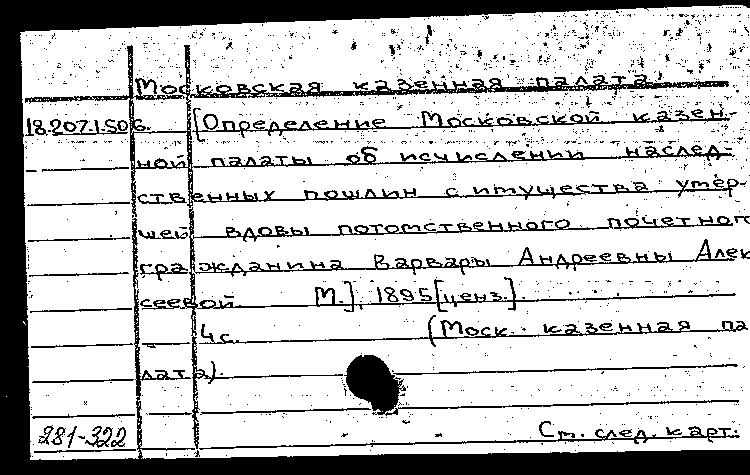 Московская казенная палата.
18.207.1.506. [Определение Московской казен-
ной палаты об исчислении наслед-
ственных пошлин с имущества умер-
шей вдовы потомственного почетного
гражданина Варвары Андреевны Алек
сеевой. М.], 1895 [ценз.].
4 с. (Моск. казенная па
лата).
281-322 См. след. карт.